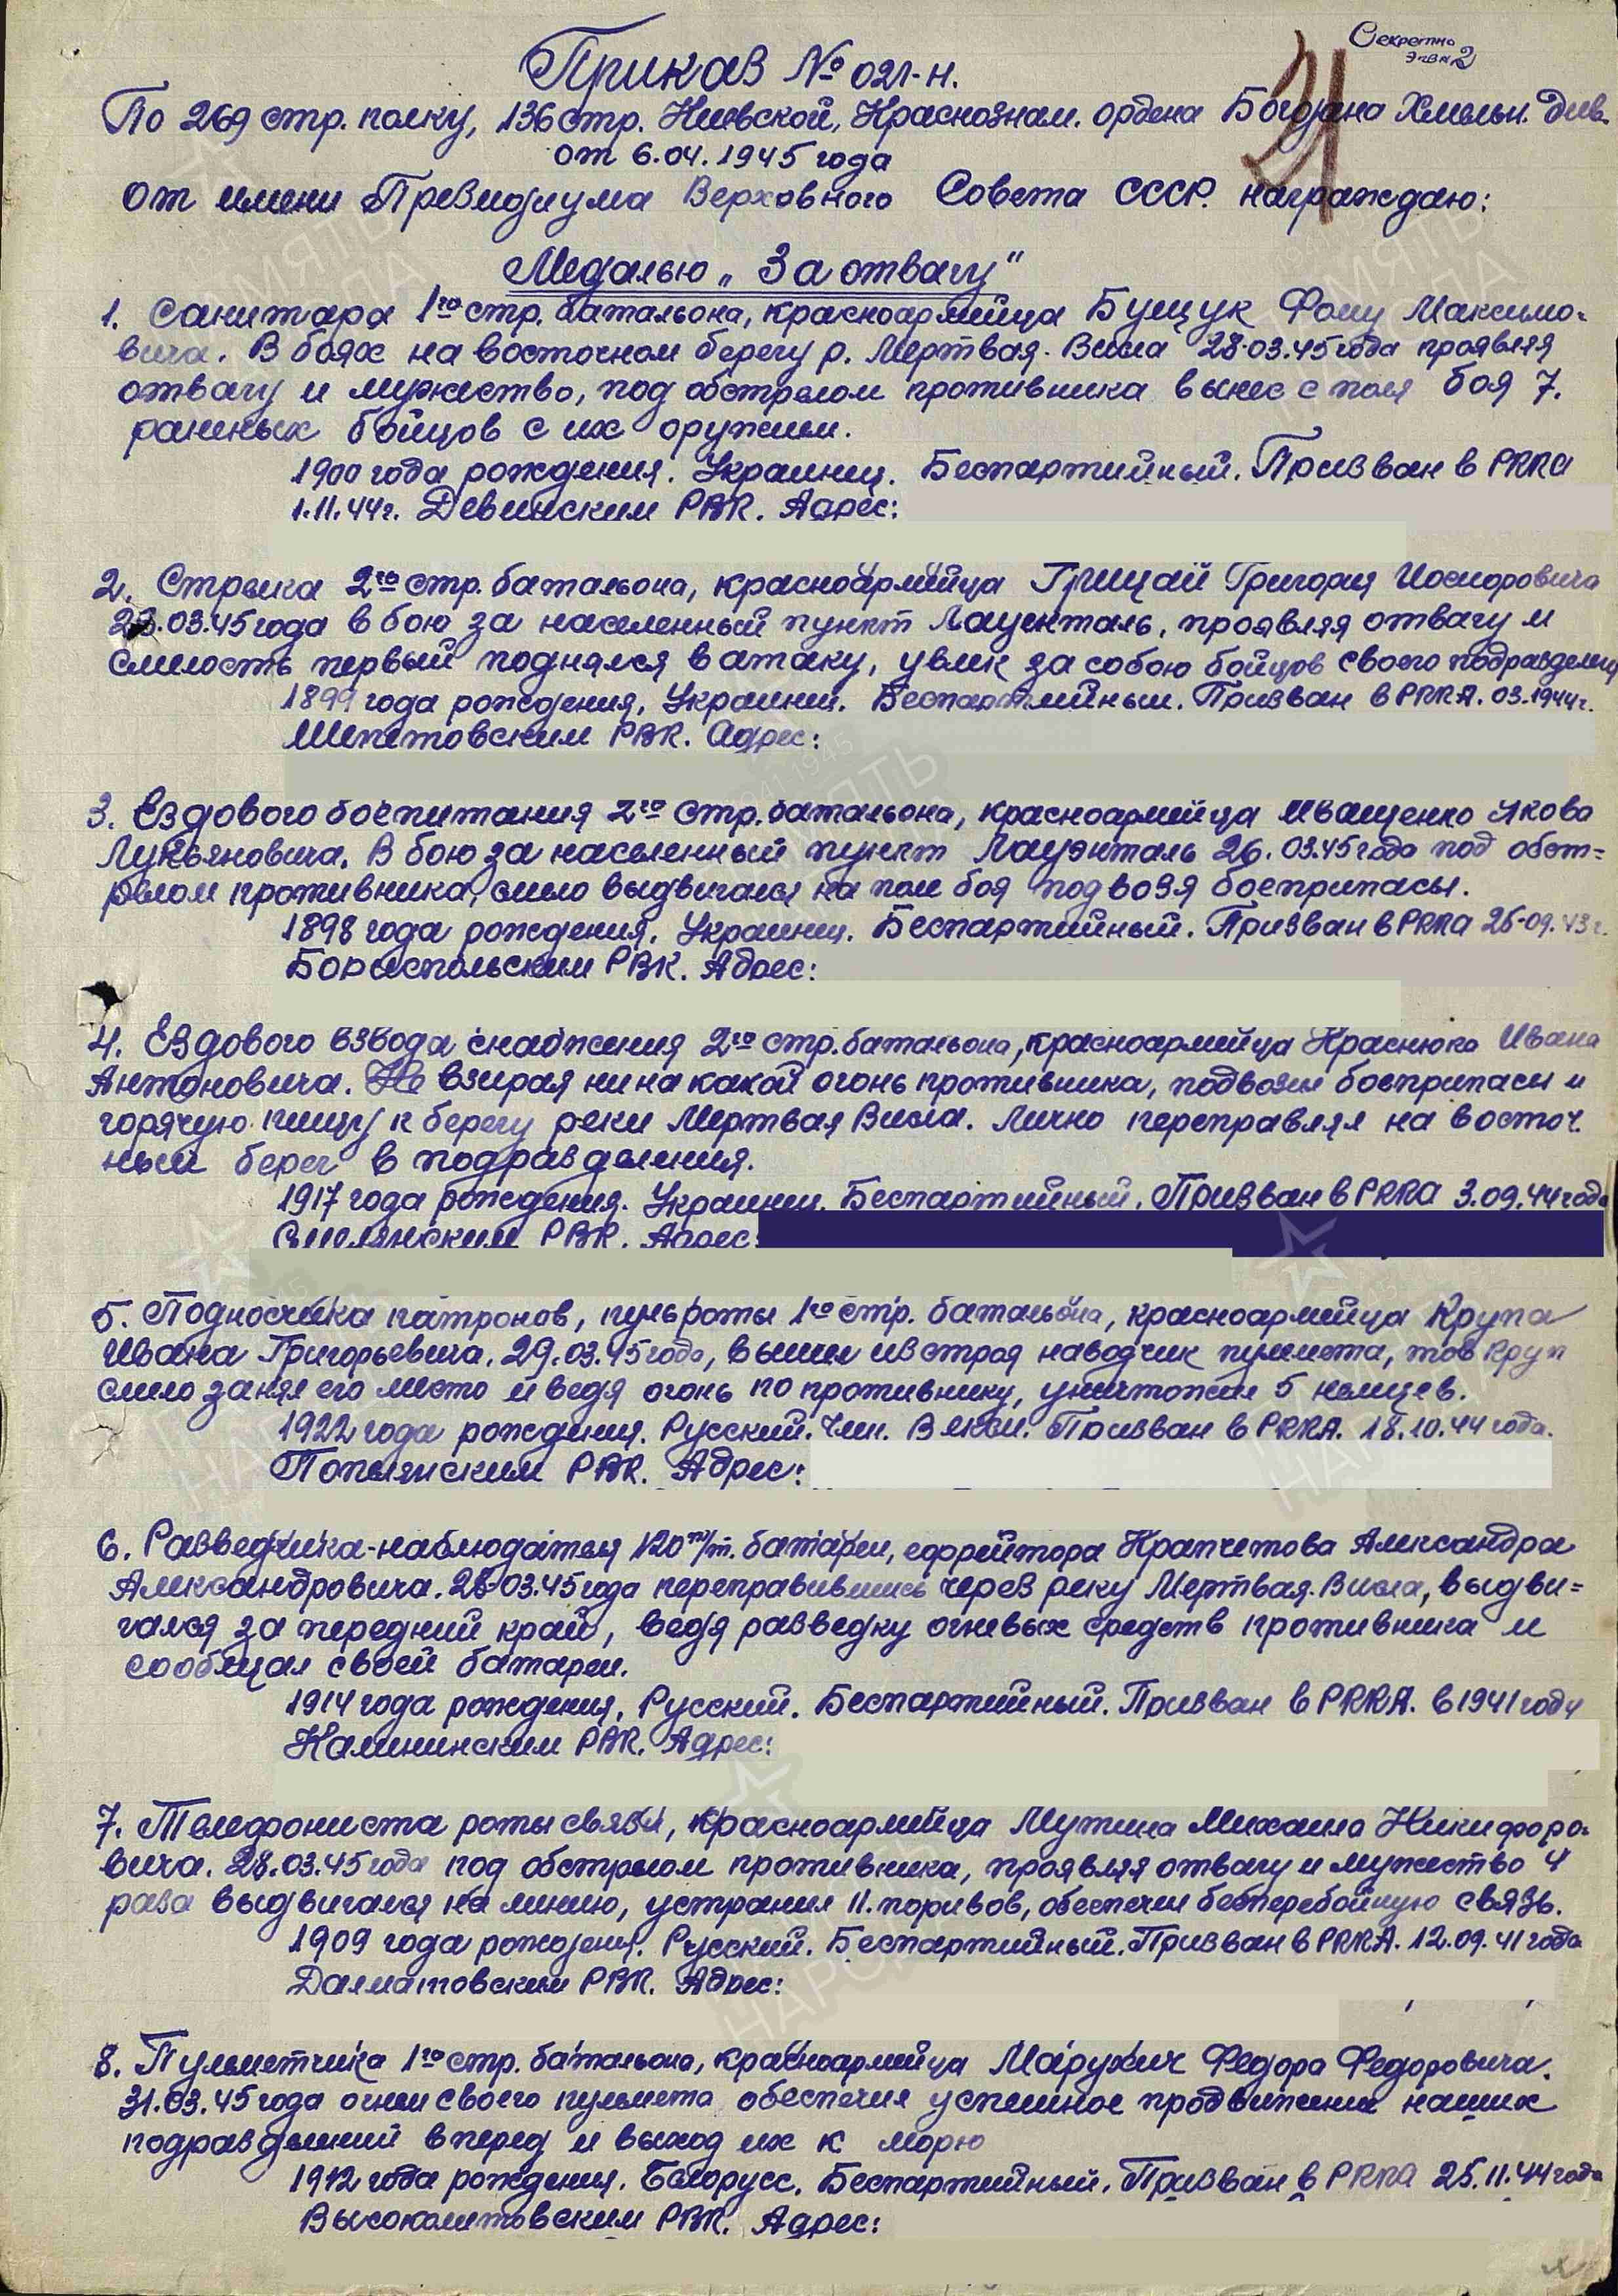 Секретно
Экз №2
21
Приказ № 021-н.
По 269 стр. полку, 136 стр. Киевской, Краснознам. ордена Богдана Хмельн. див.
от 6.04.1945 года
От имени Президиума Верховного Совета СССР. награждаю:
Медалью „За отвагу"
1. Санитара 1го стр. батальона, красноармейца Бущук Фому Максимо-
вича. В боях на восточном берегу р. Мертвая-Висла 28.03.45 года проявляя
отвагу и мужество, под обстрелом противника вынес с поля боя 7.
раненых бойцов с их оружием.
1900 года рождения. Украинец. Беспартийный. Призван в РККА
1.11.44г. Девинским РВК. Адрес:
2. Стрелка 2го стр. батальона, красноармейца Грицай Григория Иосиоровича
.03.45 года в бою за населенный пункт Лауенталь, проявляя отвагу и
смелость первый поднялся в атаку, увлек за собою бойцов своего подразделен
1899 года рождения, Украинец. Беспартийный. Призван в РККА. 03.1944г.
Шепетовским РВК. Адрес:
3. Ездового боепитания 2го стр. батальона, красноармейца Иващенко Якова
Лукьяновича. В бою за населенный пункт Лауэнталь 26.03.45 года под обст-
релом противника, смело выдвигался на поле боя подвозя боеприпасы.
1898 года рождения. Украинец. Беспартийный. Призван в РККА 25-09.43г.
Бориспольским РВК. Адрес:
4. Ездового взвода снабжения 2го стр. батальона, красноармейца Краснюка Ивана
Антоновича. Не взирая ни на какой огонь противника, подвозил боеприпасы и
горячую пищу к берегу реки Мертвая Висла. Лично переправлял на восточ.
ный берег в подразделения.
1917 года рождения. Украинец. Беспартийный. Призван в РККА 3.09.44 года
Смелянским РВК. Адрес:
5. Подносчика патронов, пульроты 1го стр. батальона, красноармейца Крупа
Ивана Григорьевича. 29.03.45 года, вышел из строя наводчик пулемета, тов Круп
смело занял его место и ведя огонь по противнику, уничтожил 5 немцев.
1922 года рождения. Русский. Член. ВЛКСМ. Призван в РККА. 18.10.44 года.
Попелянским РВК. Адрес:
6. Разведчика-наблюдателя 120 м/м. батареи, ефрейтора Крапчетова Александра
Александровича. 28-03.45 года переправившись через реку Мертвая-Висла, выдви-
гался за передний край, ведя разведку огневых средств противника и
сообщал своей батареи.
1914 года рождения. Русский. Беспартийный. Призван в РККА. в 1941 году
Калининским РВК. Адрес:
7. Телефониста роты связи, красноармейца Мутина Михаила Никифоро-
вича. 28.03.45 года под обстрелом противника, проявляя отвагу и мужество 4
раза выдвигался на линию, устранил 11. порывов, обеспечил бесперебойную связь.
1909 года рождения. Русский. Беспартийный. Призван в РККА. 12.09.41 года
Далматовским РВК. Адрес:
8. Пулеметчика 1го стр. батальона, красноармейца Марухич Федора Федоровича.
31.03.45 года огнем своего пулемета обеспечил успешное продвижение наших
подразделений вперед и выход их к морю
1912 года рождения. Белорусс. Беспартийный. Призван в РККА 25.11.44 года
Высоколитовским РВК. Адрес: